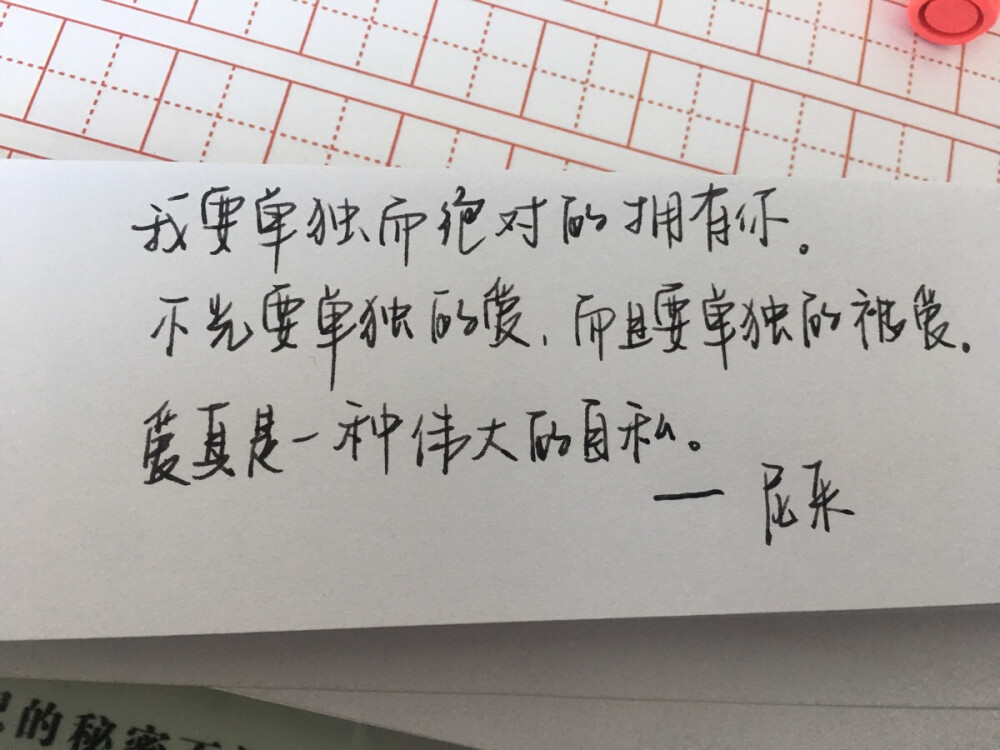 我要单独而绝对的拥有你。
不光要单独的爱，而且要单独的被爱。
爱真是一种伟大的自私。
— 尼采
的秘密